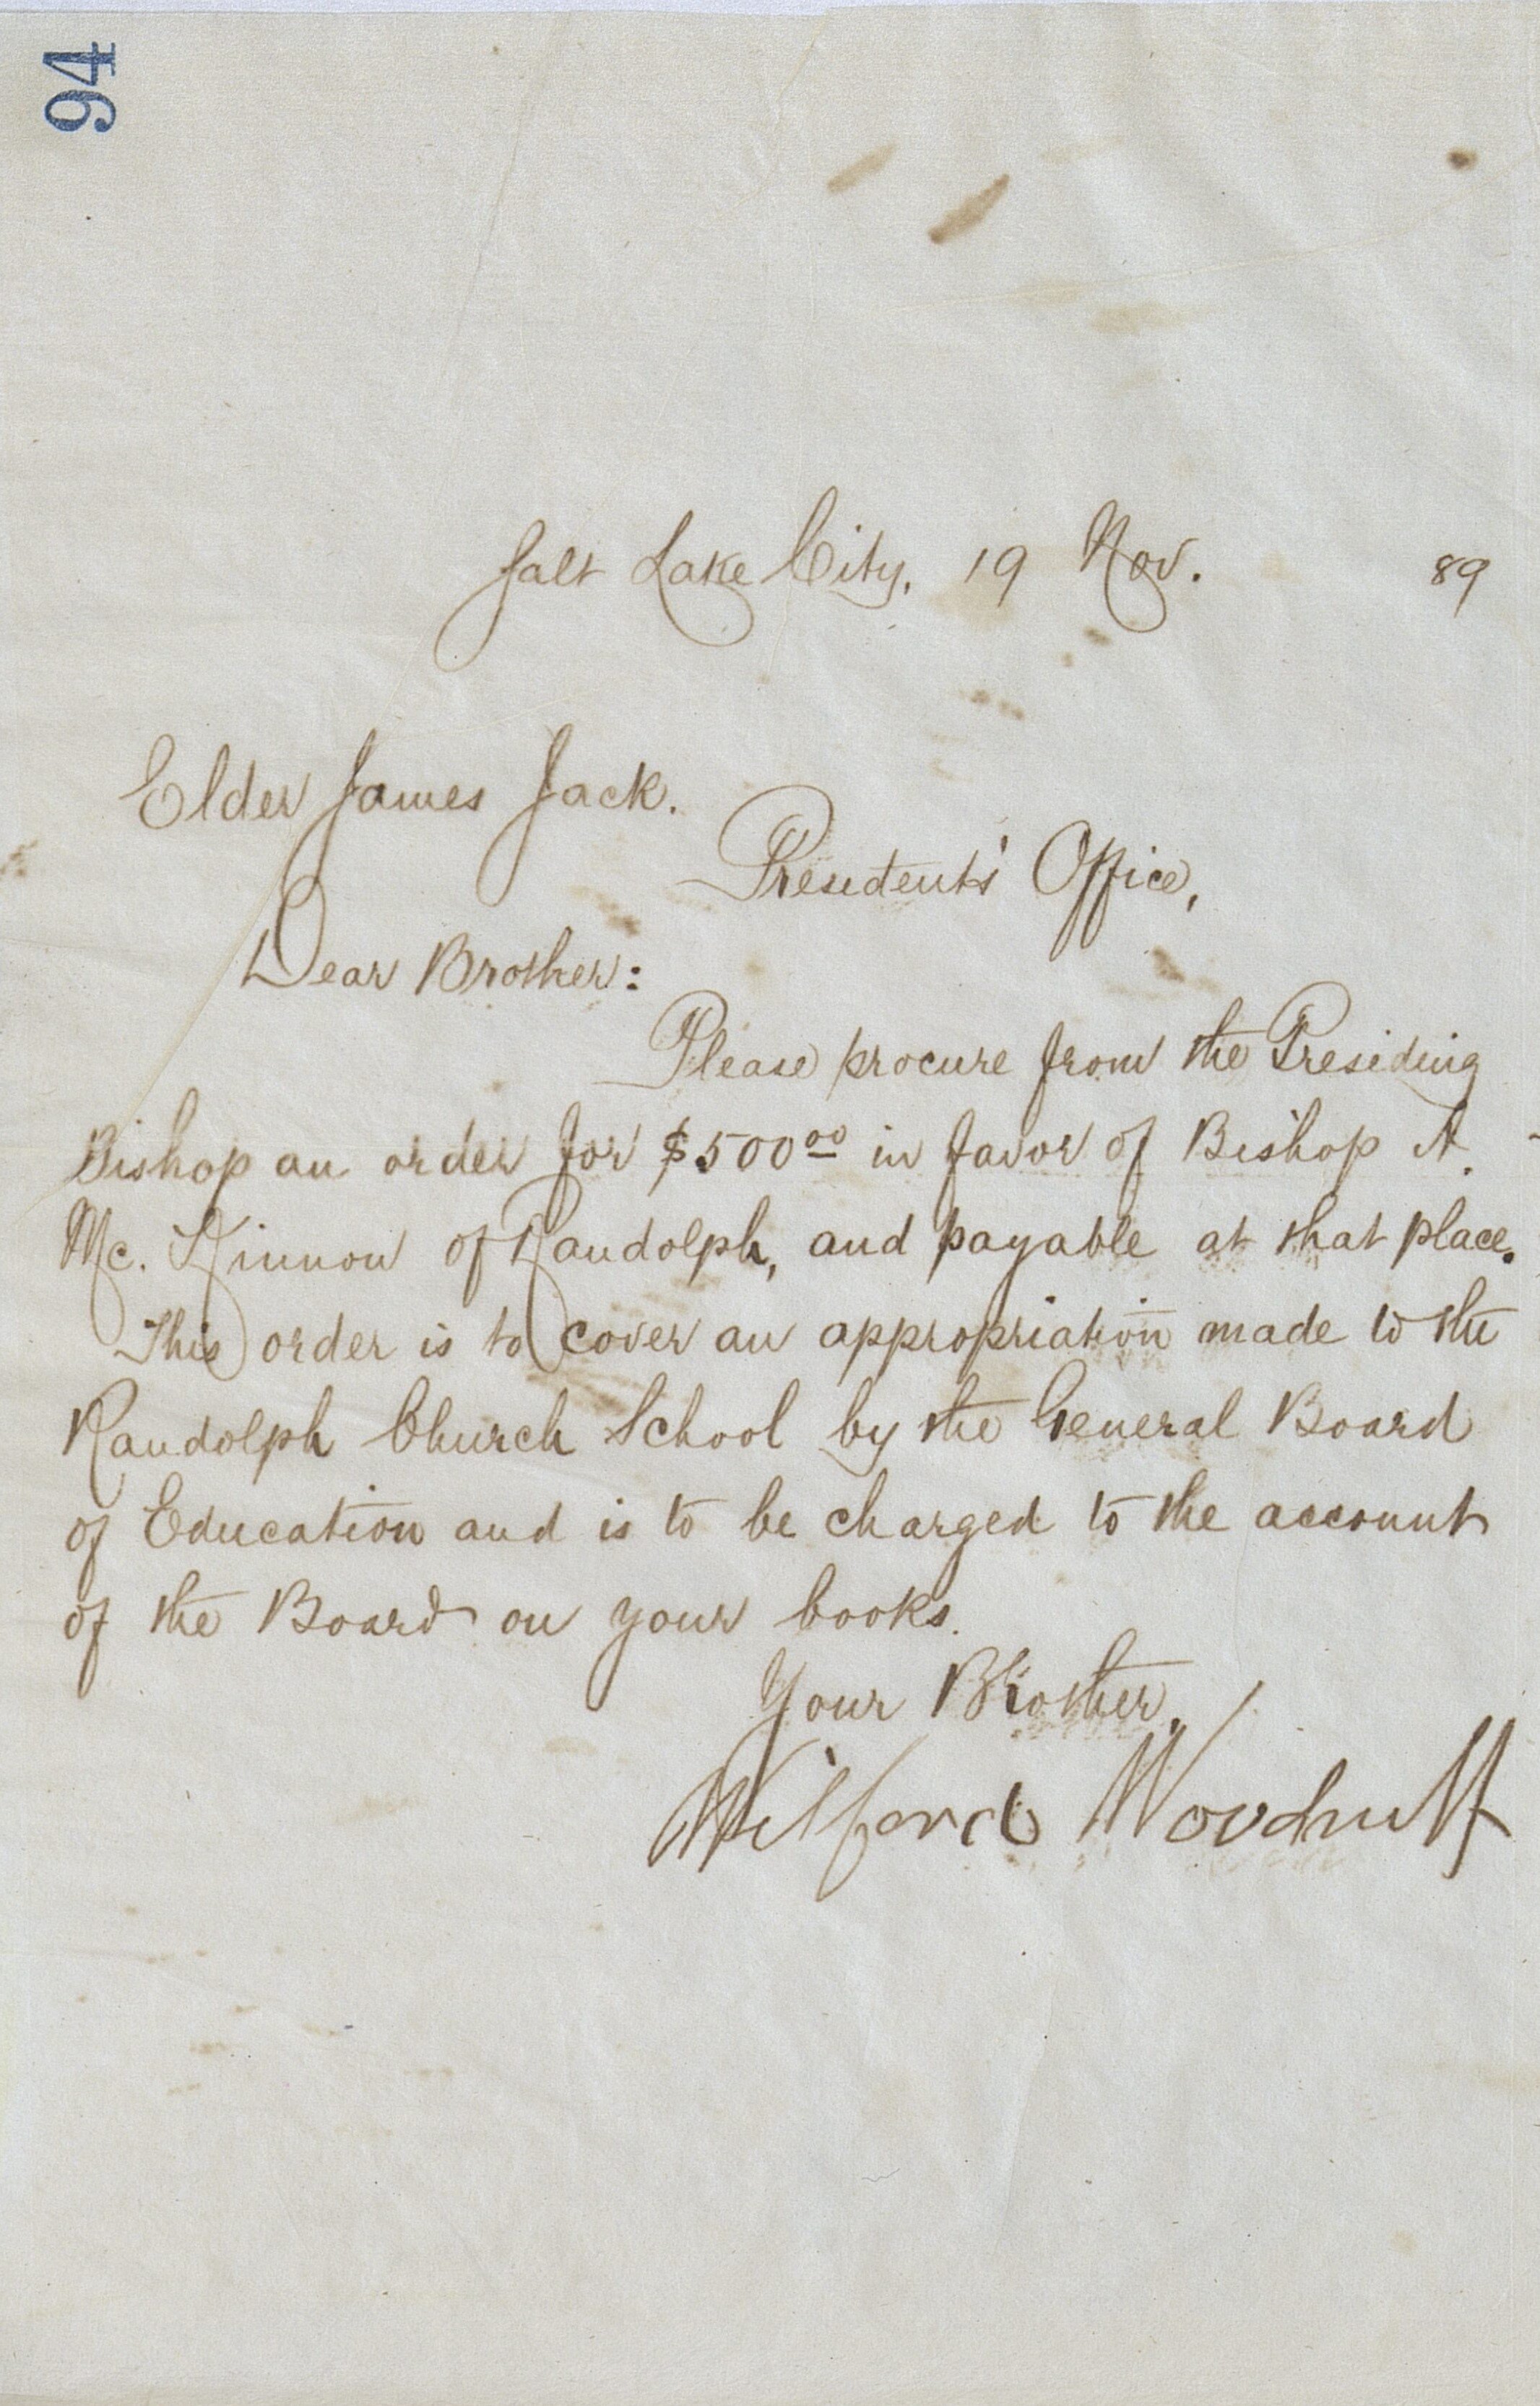 94
Salt Lake City, 19 Nov. 89
Elder James Jack.
Presidents' Office,
Dear Brother:
Please procure from the Presiding
Bishop an order for $500.00 in favor of Bishop A.
Mc. Kinnon of Randolph, and payable at that place.
This order is to cover an appropriation made to the
Randolph Church School by the General Board
of Education and is to be charged to the account
of the Board on your books.
Your Brother,
Wilford Woodruff